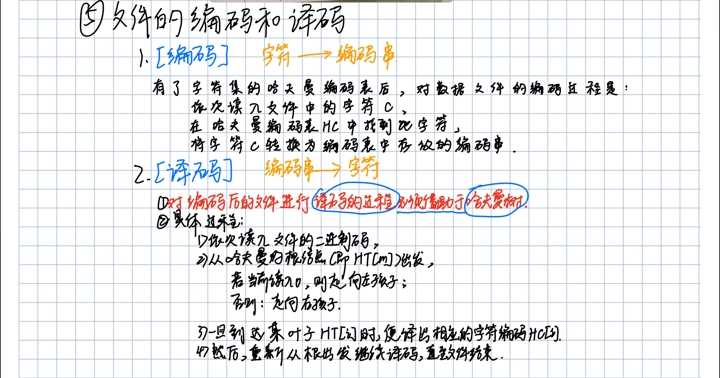 ⑤文件的编码和译码
1.[编码] 字符→编码串
有了字符集的哈夫曼编码表后，对数据文件的编码过程是：
依次读入文件中的字符C，
在哈夫曼编码表HC中找到此字符，
将字符C转换为编码表中存放的编码串.
2.[译码] 编码串→字符
①对编码后的文件进行译码的过程必须借助于哈夫曼树.
②具体过程:
1)依次读入文件的二进制码，
2)从哈夫曼的根结点(即HT[m])出发，
若当前读入0，则走向左孩子；
否则：走向右孩子.
3)一旦到达某叶子HT[i]时，便译出相应的字符编码HC[i].
4)然后，重新从根出发继续译码，直至文件结束.